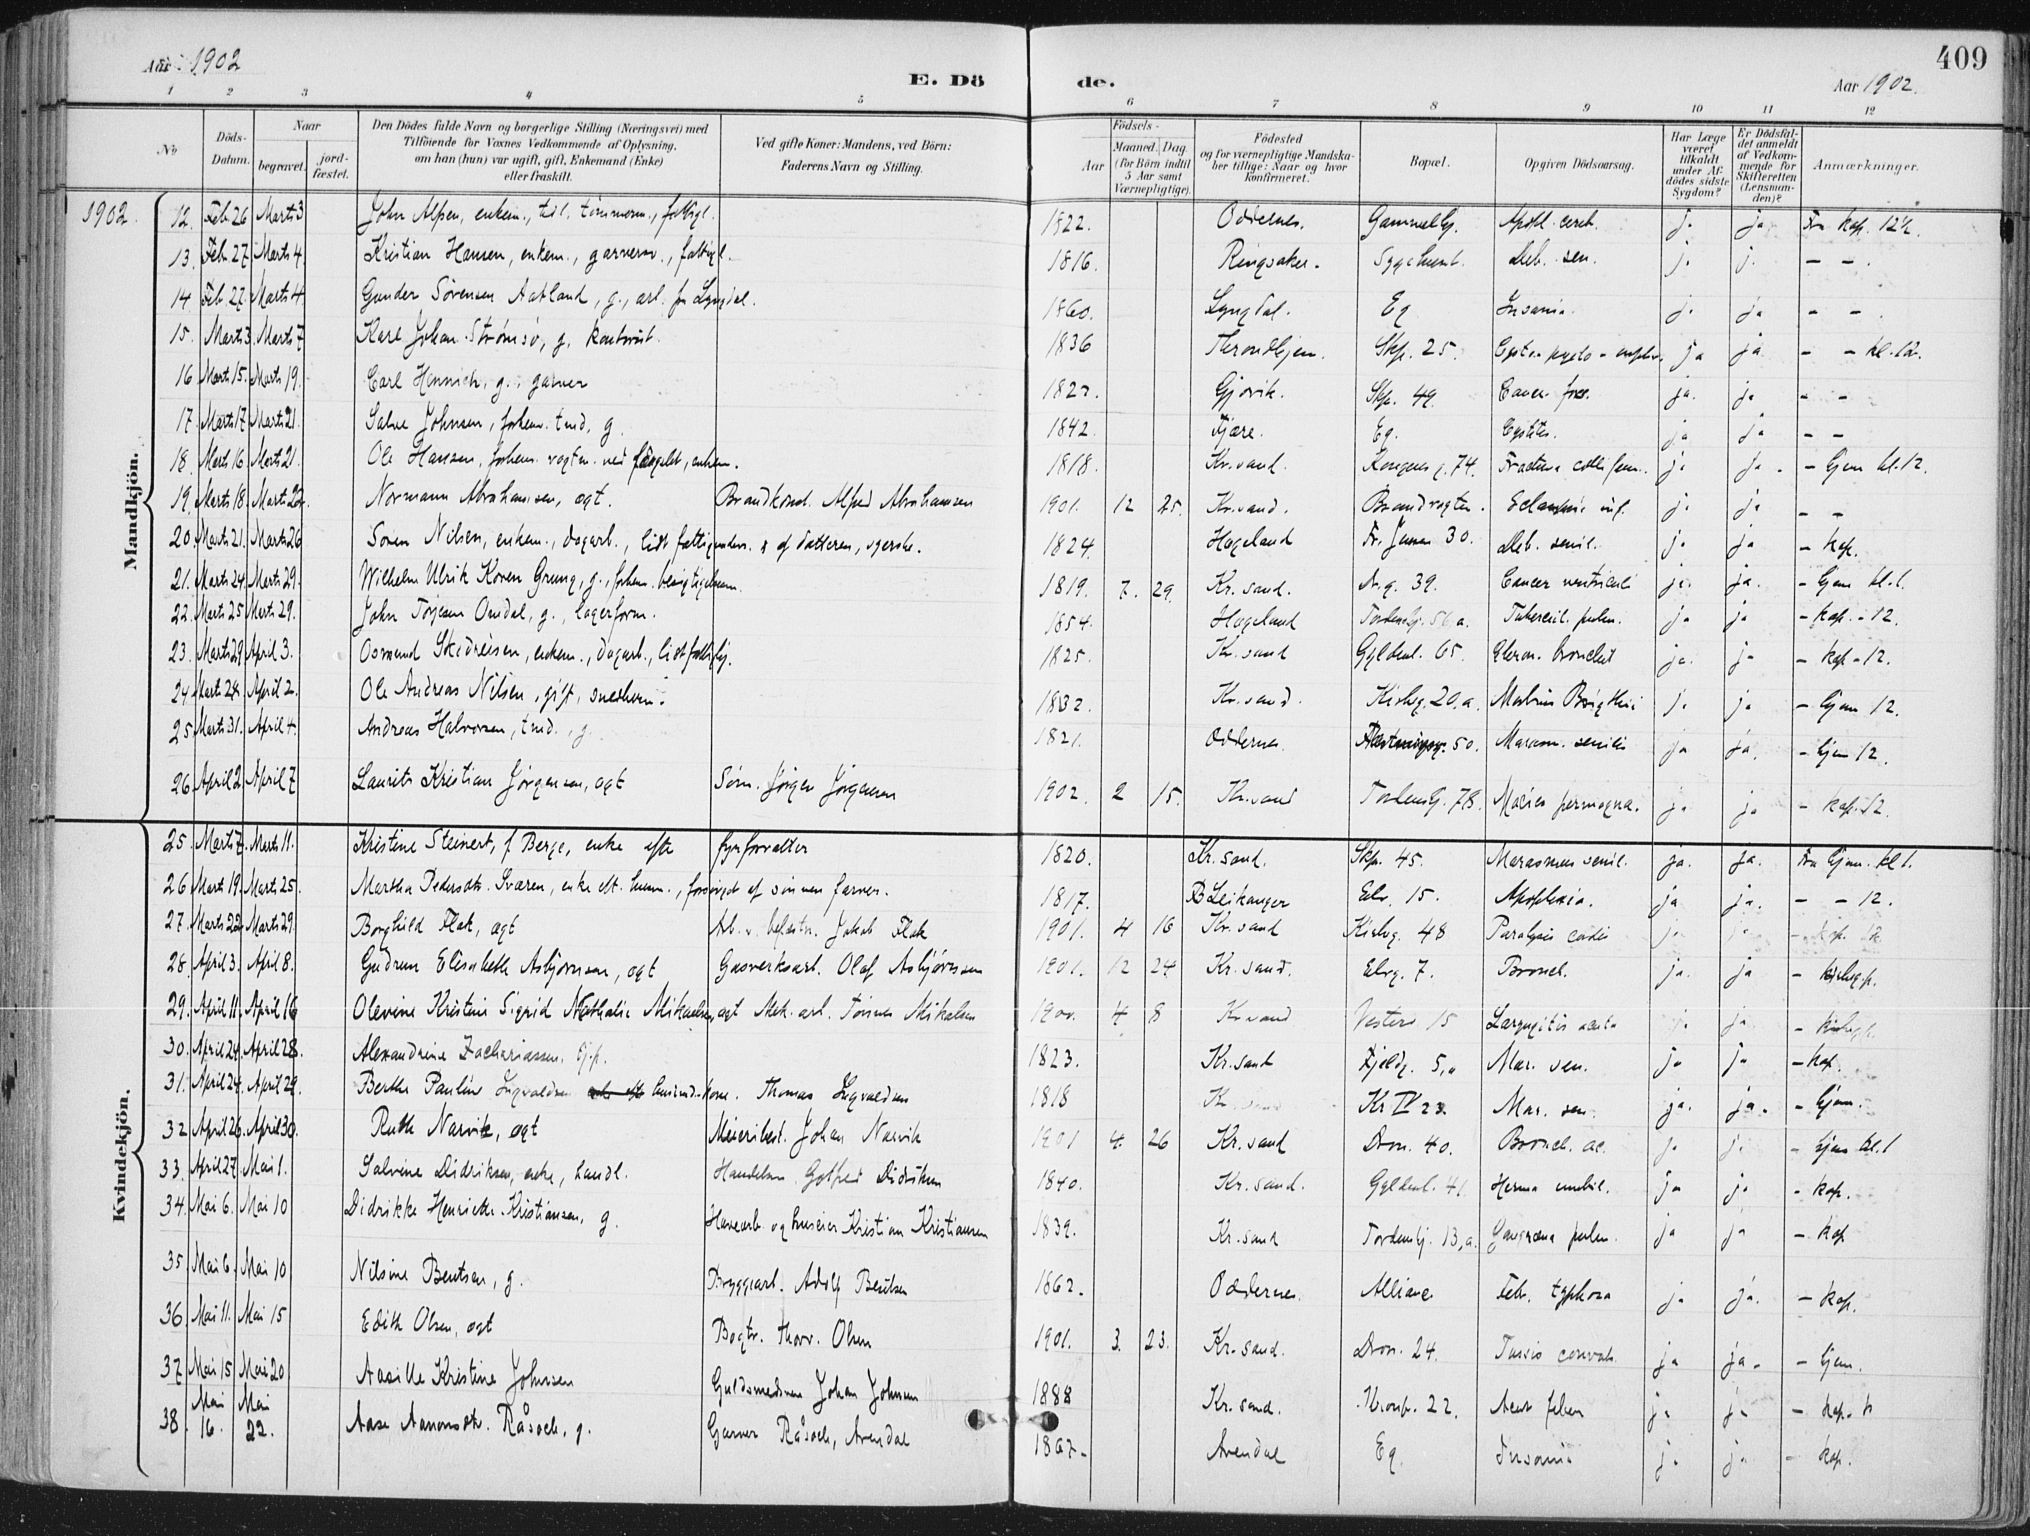 409
Aar 1902
E. Döde.
Aar 1902.
1 2 3 4 5 6 7 8 9 10 11 12
No
Döds-Datum.
Naar
begravet.
jordfæstet.
Den Dödes fulde Navn og borgerlige Stilling (Næringsvei) med Tilföiende for Voxnes Vedkommende af Oplysning, om han (hun) var ugift, gift, Enkemand (Enke) eller fraskilt.
Ved gifte Koner: Mandens, ved Börn: Faderens Navn og Stilling.
Födsels-
Aar
Maaned. Dag.
(for Börn indtil 5 Aar samt Værnepligtige).
Födested og for værnepligtige Mandskaber tillige: Naar og hvor konfirmeret.
Bopæl.
Opgiven Dödsaarsag.
Har Læge været tilkaldt under Afdödes sidste Sygdom?
Er Dödsfaldet anmeldt af Vedkommende for Skifteretten (Lensmanden)?
Anmærkninger.
1902.
Mandkjön.
12. Feb 26 Marts 3 John Alfsen, enkem., tidl. tömmerm., fattigl. 1822. Oddernes. Gammelby. Apopl. cereb. ja ja Fra kap. 12½.
13. Feb 27 Marts 4 Kristian Hansen, enkem., garversv., fattigl. 1816. Ringsaker. Sygehuset. Deb. sen. ja j. — —
14 Feb. 27. Marts 4 Gunder Sörensen Aatland, g., arb. fra Lyngdal. 1860. Lyngdal. Eg Insania. ja ja — —
15. Marts 3 Marts 7 Karl Johan Strömsö, g. 1836 Throndhjem. Skp. 25. ja ja — — kl. 12.
16 Marts 15. Marts 19. Carl Hennich, g., garver Gjövik. Skp. 49. ja. ja — —
17. Marts 17 Marts 21. Salve Johnsen, forhenv. tmd, g. 1842. Fjære. Eg. Cystitis. ja ja — —
18. Marts 16. Marts 21. Ole Hansen, forhenv. vogter ved fängslet, enkem. 1818. Kr.sand. Kongens g. 74. Fractura colli fem. ja ja. — hjem kl. 12.
19. Marts 18. Marts 22. Normann Abrahamsen, ægt. Brandkonst. Alfred Abrahamsen 1901. 12 25. Kr.sand. Brandvagten. Eclampsia inf. ja ja — —
20. Marts 21. Marts 26 Sören Nilsen, enkem., dagarb., lidt fattigunders. & af datteren, syerske. 1824. Hægeland 30. Deb. senil. ja ja — kap.
21. Marts 24. Marts 29. Wilhelm Ulrik Koren Grung, g., forhenv. 1819. 7. 29. Kr.sand. 39. Cancer ventriculi ja ja. — hjem kl. 1.
22. Marts 25 Marts 29. John Torjesen Omdal, g., lagerform. 1854. Hægeland Tordenskj. 56 a. Tubercul. pulm. ja ja — kap. - 12.
23. Marts 29 April 3. Osmund Skidreisen, enkem., dagarb., lidt fattighj. 1825. Kr.sand Gyldenl. 65. Chron. bronchit ja. ja — kap - 12.
24 Marts 24. April 2. Ole Andreas Nilsen, gift, snedkerm. 1832. Kr.sand. Kirkeg. 20.a. Morbus Brigthii ja ja — hjem 12.
25. Marts 31. April 4. Andreas Halvorsen, tmd., g. 1821. Oddernes 50. Marasm. senilis ja ja. — hjem 12.
26. April 2 April 7 Laurits Kristian Jörgensen, ægt Söm. Jörgen Jörgensen 1902. 2 15. Kr.sand Tordenskj. 78. Macies permagna. ja ja — kap. 12
Kvindekjön.
25. Marts 7. Marts 11. Kristine Steinert, f Berge, enke efter fyrforvalter 1820. Kr.sand. Skp. 45. Marasmus senil. ja. ja. Fra hjem. kl 1.
26 Marts 19. Marts 25. Martha Pedersdtr. Sværen, enke eft. husm., forsörget af sönnen farver. 1817. Leikanger Elv. 15. Apoplexia. ja ja. — — 12.
27. Marts 22 Marts 29. Borghild Flak, ægt Arb. v. befæstn. Jakob Flak 1901. 4 16 Kr.sand Kirkeg. 48 Paralysis cordis ja ja — kap. 12
28 April 3. April 8. Gudrun Elisabeth Asbjörnsen, ægt Gasverksarb. Olaf Asbjörnsen 1901. 12 24 Kr.sand. Elvg. 7. Bronch. ja. ja —
29. April 11. April 16 Olevine Kristine Sigrid Nathalie Mikalsen, ægt Mek. arb. Tönnes Mikalsen 4 8 Kr.sand Vester. 15 Laryngitis acuta ja ja —
30. April 24. April 28. Alexandrine Zachariassen. 1823. Kr.sand Fjeldg. 5, Mar. sen. ja ja — kap.
31. April 24. April 29. Berthe Pauline Ingvaldsen Thomas Ingvaldsen 1818 Kr.sand Kr IV 23. Mar. sen ja. ja. — hjem.
32 April 26. April 30. Ruth Narvik, ægt Meieribest. Johan Narvik 1901 4. 26 Kr.sand Dron. 40. Bronch. ac. ja j. — hjem kl. 1
33. April 27. Mai 1. Salvine Didriksen, enke, handl. Handelsm. Gotfred Didriksen 1840. Kr.sand. Gyldenl. 41 Hernia umbil. ja ja — kap.
34. Mai 6. Mai 10 Didrikke Henriette Kristiansen, g. Havearb. og huseier Kristian Kristiansen 1839. Kr.sand Tordenskj. 13,a. Gangræna pulm. ja ja — kap
35. Mai 6. Mai 10 Nilsine Bentsen, g. Bryggearb. Adolf Bentsen 1862. Oddernes. Alliance Feb. typhosa ja ja. — kap.
36. Mai 11. Mai 15 Edith Olsen, ægt Bogtr. Thorv. Olsen 1901. 3. 23. Kr.sand. Dron. 24. Tussis convuls. ja ja. — hjem.
37 Mai 15 Mai 20 Aasille Kristine Johnsen Guldsmedsvend Johan Johnsen 1888 Kr.sand. Kronpr. 22. ja ja — kap.
38. Mai 16. Mai 22. Aase Aanonsdtr. Råsock, g. Garver Råsock, Arendal 1867. Arendal Eg. Insania ja ja — kap.